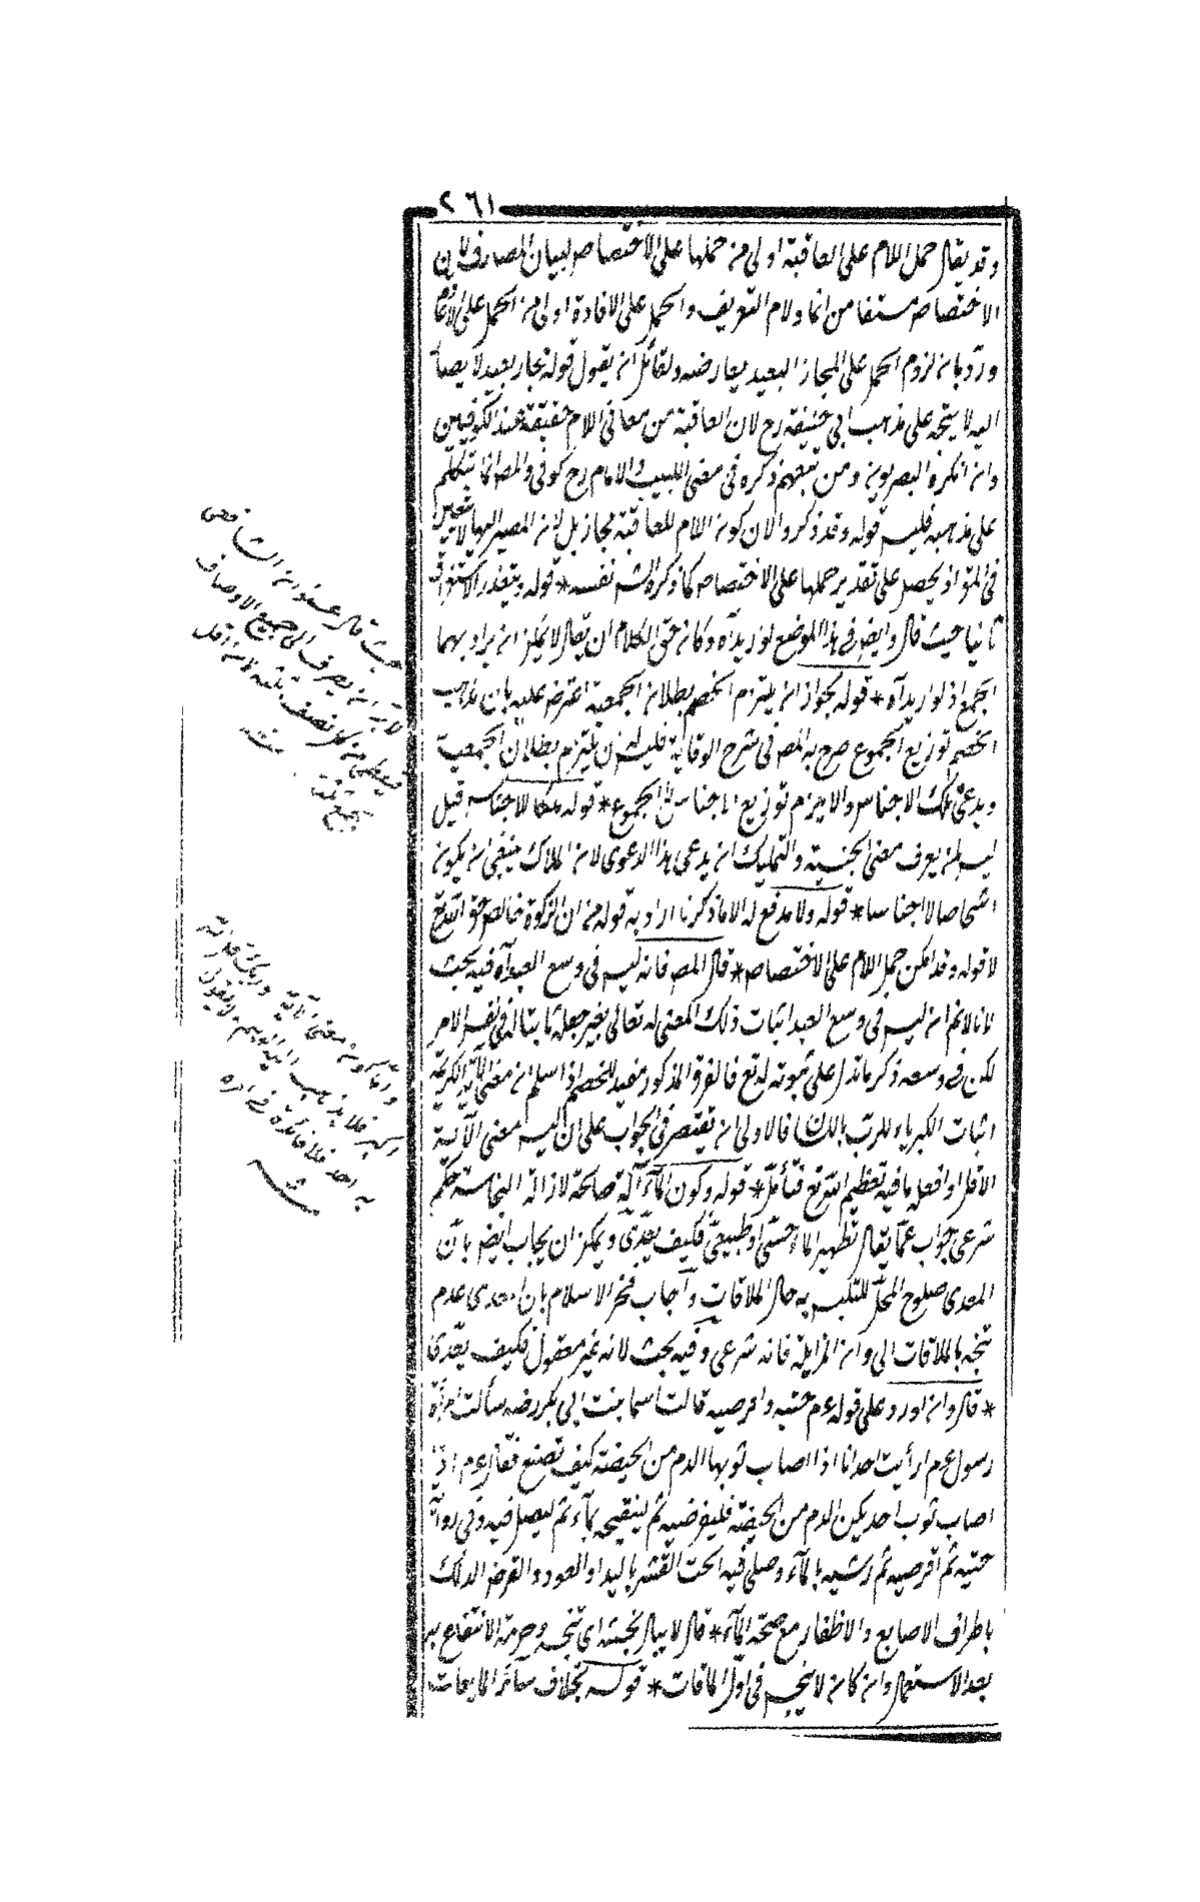 ٢٦١
وقد يقال حمل اللام على العاقبة اولى من حملها على الاختصاص لبيان المصارف لان
الاختصاص مستفاد من انما ولام التعريف والحمل على الافادة اولى من الحمل على
ورد بان لزوم الحمل على المجاز البعيد يعارضه ولقائل ان يقول قوله مجاز بعيد لا يصار
اليه لا يتجه على مذهب ابي حنيفة رح لان العاقبة من معاني اللام حقيقة عند الكوفيين
وان انكره البصريون ومن تبعهم ذكره في مغني اللبيب والامام رح كوفي والمص انما يتكلم
على مذهبه فليس قوله وقد ذكروا لان كون اللام للعاقبة مجاز بل لان المصير اليها
في المؤاد يحصل على تقدير حملها على الاختصاص كما ذكره الشم نفسه * قوله ويتعذر الاستغراق
ثانيا حيث قال وايضا في هذا الموضع لو اريد آه وكان حق الكلام ان يقال لا يمكن ان يراد بهما
الجمع اذ لو اريد آه * قوله لجواز ان يلتزم الخصم بطلان الجمعية اعترض عليه بان مذهب
الخصم توزيع المجموع صرح به المص في شرح الوقاية فليس له ان يلتزم بطلان الجمعية
ويدعي تلك الاجناس والا يلزم توزيع الاجناس لا المجموع * قوله ملكا لاجناسه قيل
ليس لمن يعرف معنى الجنسية والتمليك ان يدعي هذا الدعوى لان الملاك ينبغي ان يكون
اشخاصا لا اجناسا * قوله ولا مدفع له الا ما ذكرنا اراد به قوله من ان الزكوة خالص حق الله تع
لا قوله وقد امكن حمل اللام على الاختصاص * قال المص فانه ليس في وسع العبد آه فيه بحث
لانا لا نم انه ليس في وسع العبد اثبات ذلك المعنى له تعالى بغير جعله ثابتا له في نفس الامر
لكن في وسعه ذكر ما يدل على ثبوته له تع فالفرق المذكور مفيد للخصم اذا سلم ان معنى الآية الكريمة
اثبات الكبرياء للرب باللسان فالاولى ان يقتصر في الجواب على ان ليس معنى الآية
الا قل او افعل ما فيه تعظيم الله تع فتأمل * قوله وكون الماء آلة صالحة لازالة النجاسة حكم
شرعي جواب عما يقال تطهير الماء حسي او طبيعي فكيف يعدى ويمكن ان يجاب ايضا بان
المعدى صلوح المحل للتلبس به حال الملاقات واجاب فخر الاسلام بان المعدى عدم
تنجسه بالملاقات الى اوان المزايلة فانه شرعي وفيه بحث لانه غير معقول فكيف يعدى
* قال وان اورد على قوله عم حتيه واقرصيه قالت اسما بنت ابي بكر رضه سألت امرأة
رسول عم ارأيت احدانا اذا اصاب ثوبها الدم من الحيضة كيف تصنع فقال عم اذا
اصاب ثوب احديكن الدم من الحيضة فليقرضيه ثم لينضحه بماء ثم ليصل فيه وفي رواية
حتيه ثم اقرصيه ثم رشيه بالماء وصلي فيه الحت القشر باليد او العود والقرض الدلك
باطراف الاصابع والاظفار مع صحة الماء * قال لا يبال بنجسه اي تنجسه وحرمة الانتفاع به
بعد الاستعمال وان كان لا ينجس في اول الملاقات * قوله بخلاف سائر المايعات
حيث قال عنوان الشافعي
لا بد ان يصرف الى جميع الاوصاف
فيعطي من كل صنف ثلثة لانه اقل
الجمع
منه
اكبر فلا يذهب
به احد فلا فائدة في اراده